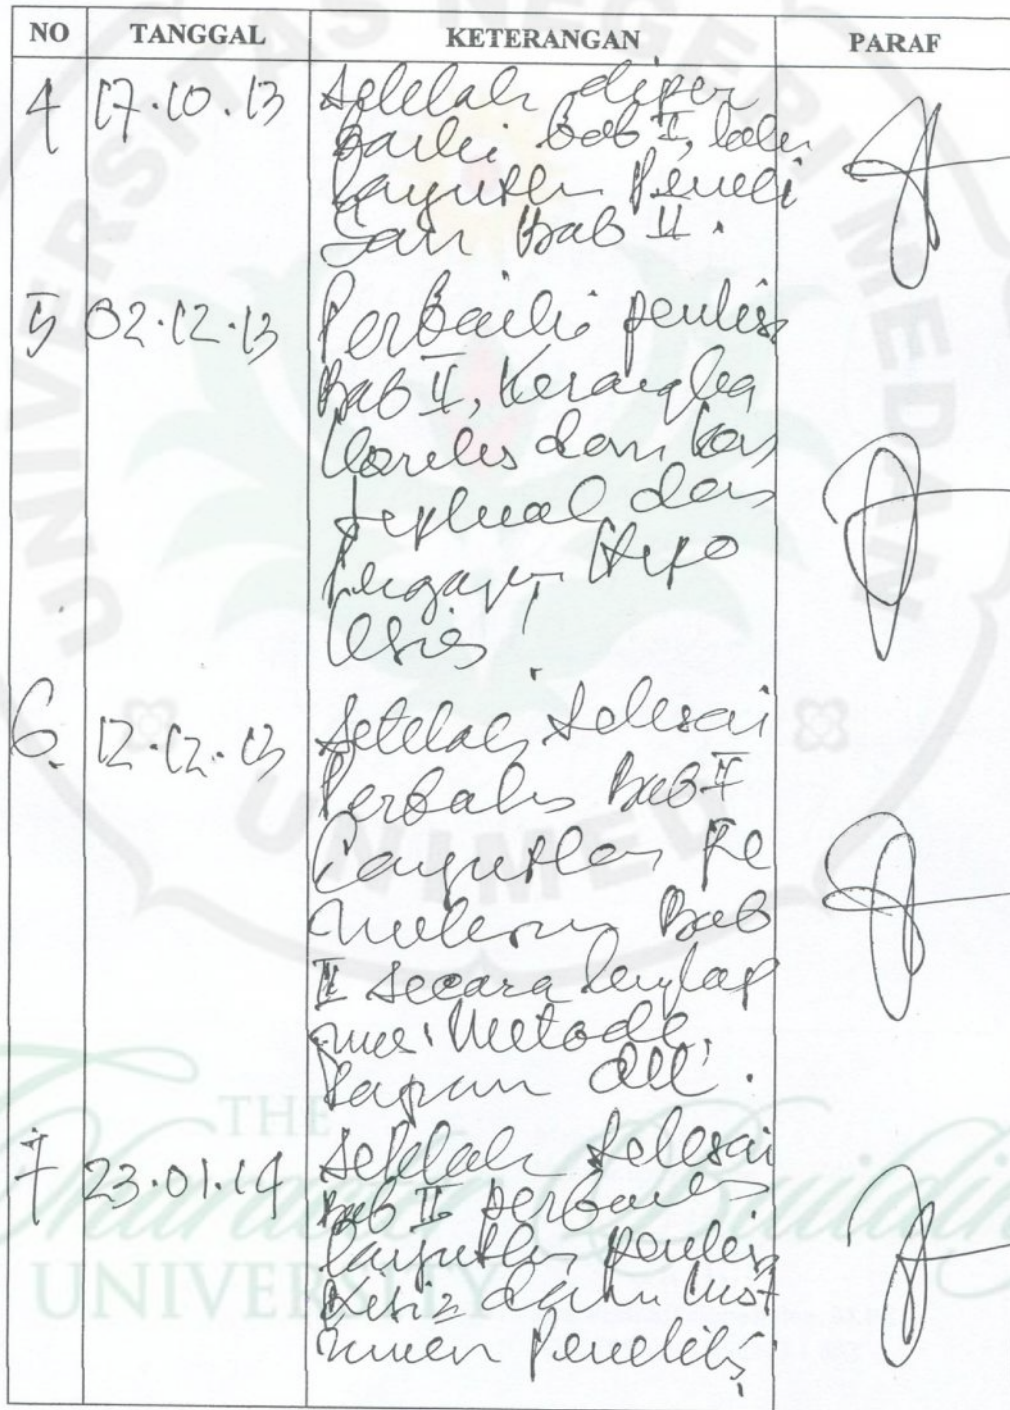 NO TANGGAL KETERANGAN PARAF
4 17.10.13 Setelah diper
baiki Bab I, lalu
lanjutkan Penuli
san Bab II.
5 02.12.13 Perbaiki penulisan
Bab II, Kerangka
Teoritis dan Kon
septual dan
Pengajuan Hipo
tesis
6. 12.12.13 Setelah selesai
Perbaikan Bab II
lanjutkan Pe
nulisan Bab
secara lengkap
Metode
dll.
7 23.01.14 Setelah selesai
Bab II perbaikan
lanjutkan penulisan
dan Inst
rumen Penelitian
UNIVERSITAS NEGERI MEDAN
UNIMED
THE
UNIVERSITY